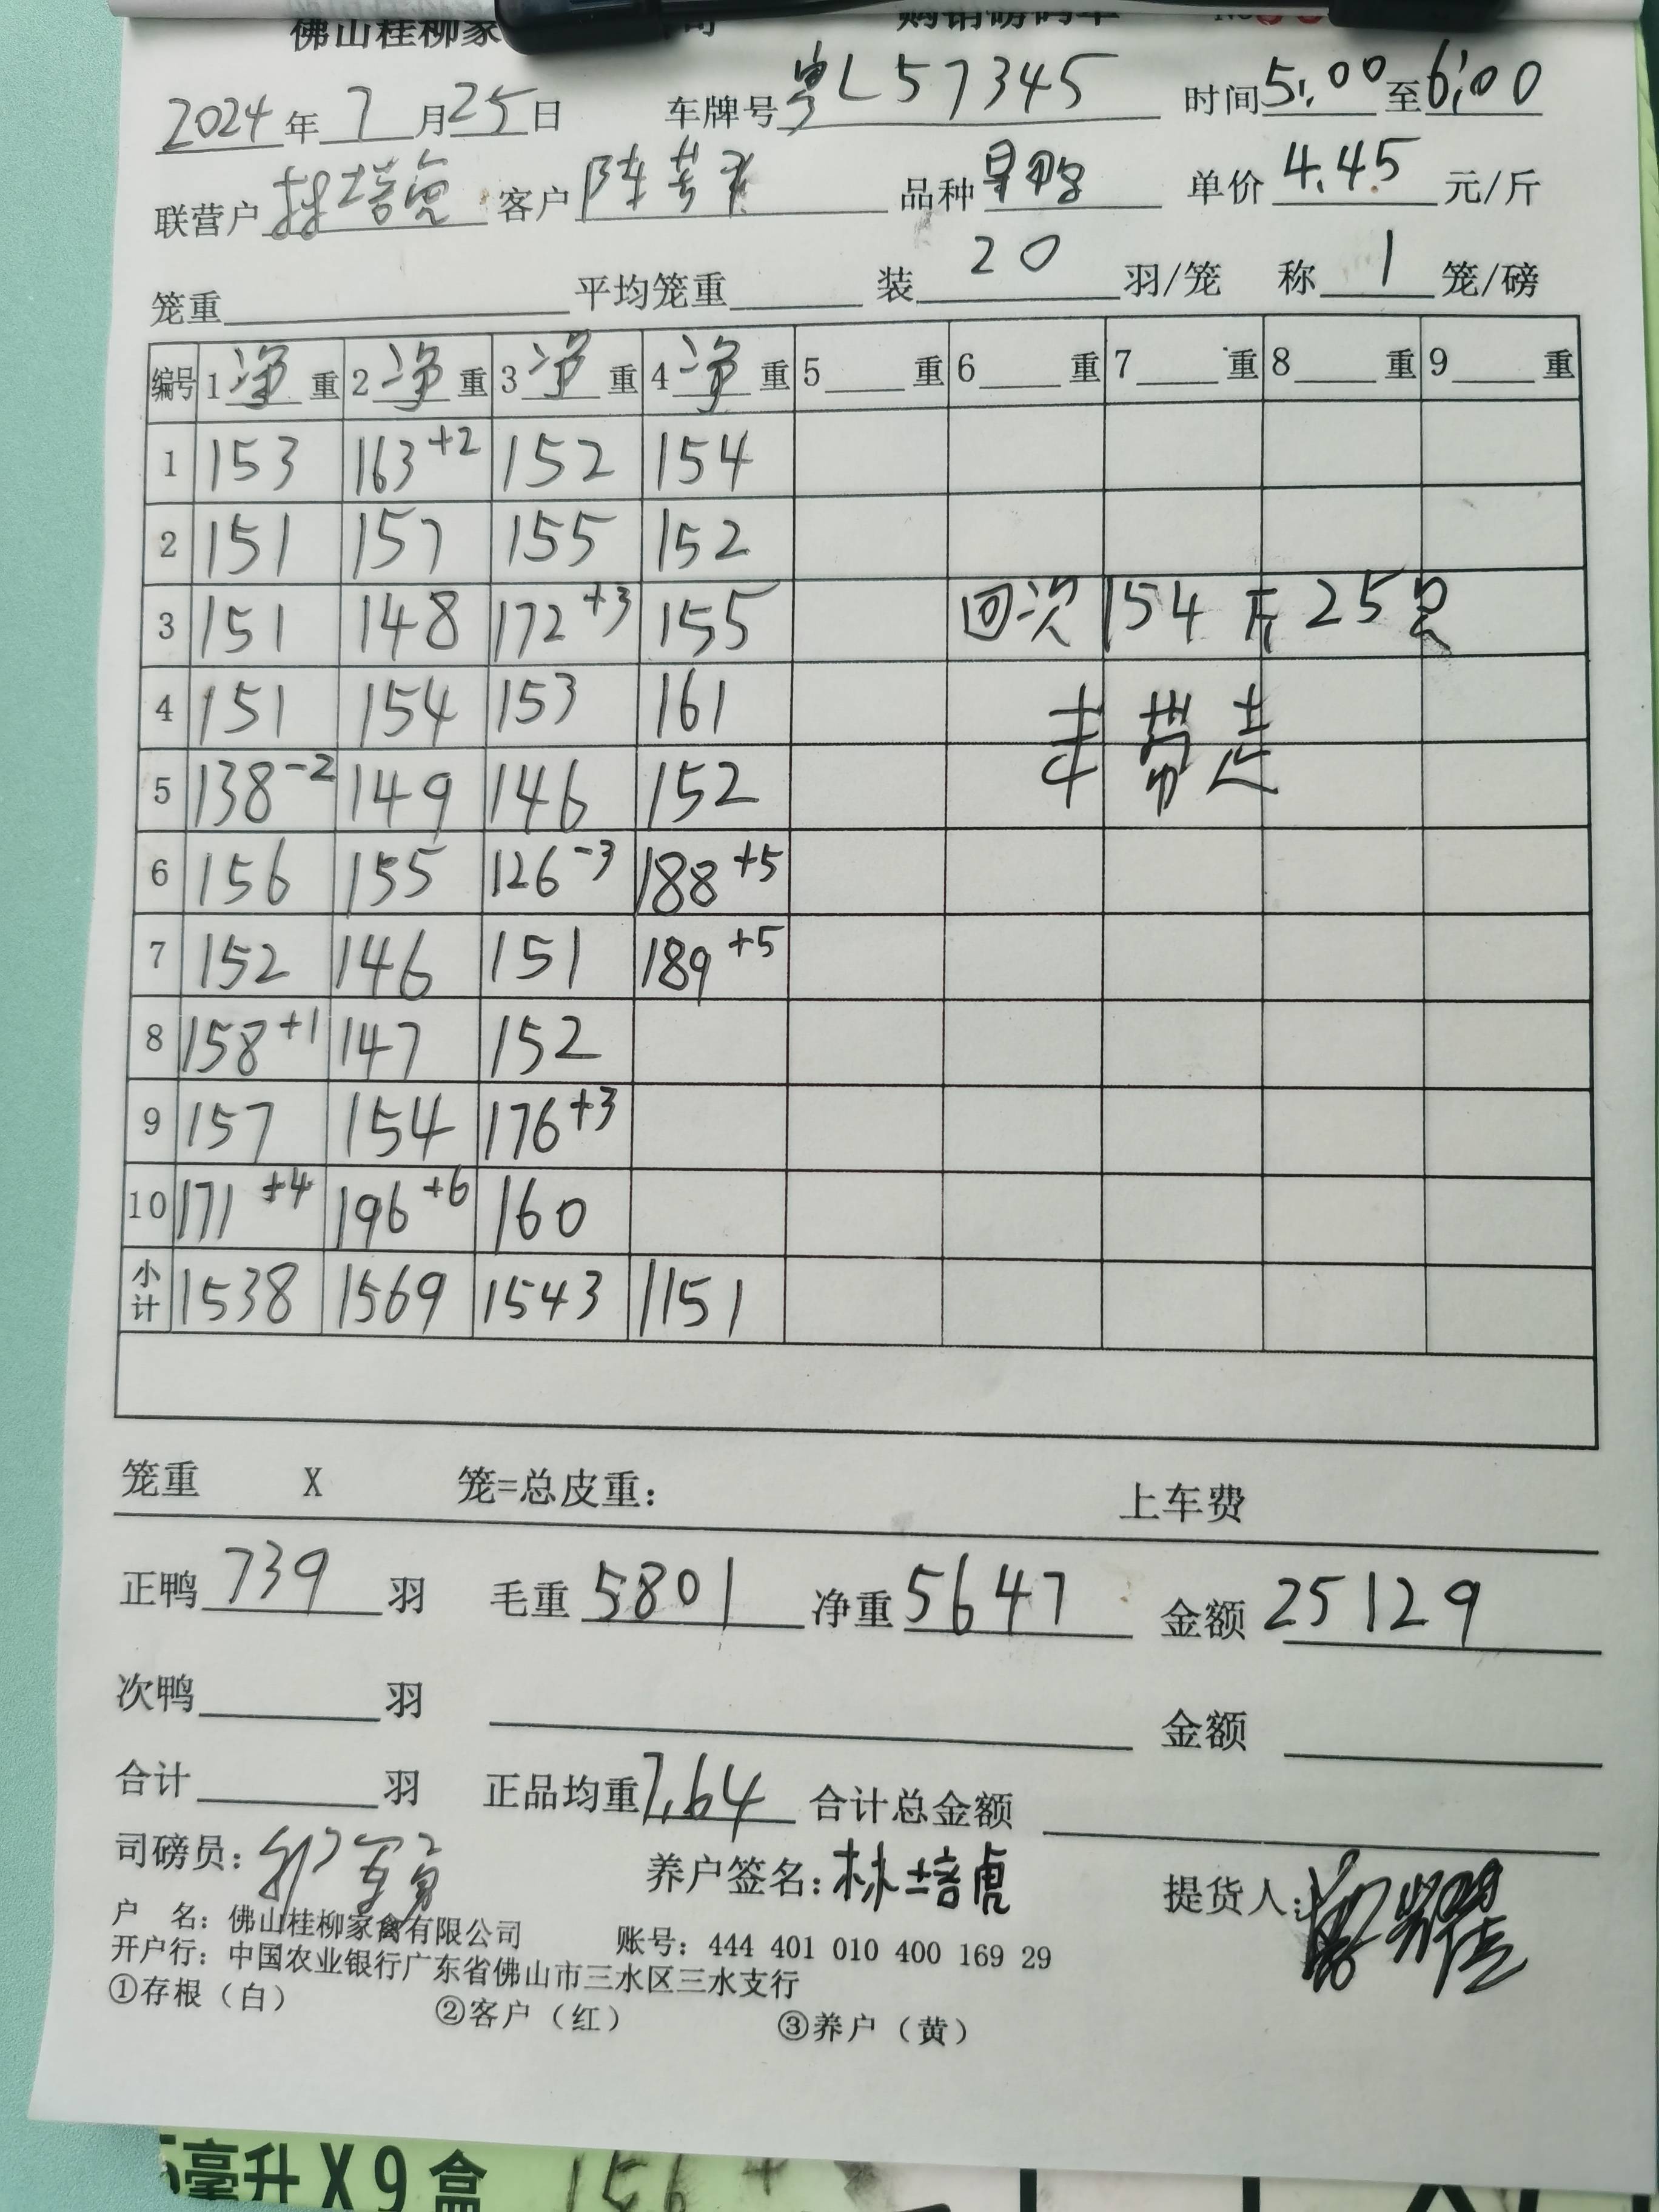 佛山桂柳家
2024年7月25日 车牌号 粤L57345 时间5:00至6:00
联营户 林培虎 客户 陈 品种 单价4.45元/斤
笼重 平均笼重 装20羽/笼 称1笼/磅
编号 1净重 2净重 3净重 4净重 5 重 6 重 7 重 8 重 9 重
1 153 163+2 152 154
2 151 157 155 152
3 151 148 172+3 155 回次154斤25只
4 151 154 153 161 未带走
5 138-2 149 146 152
6 156 155 126-3 188+5
7 152 146 151 189+5
8 158+1 147 152
9 157 154 176+3
10 171+4 196+6 160
小计 1538 1569 1543 1151
笼重 X 笼=总皮重: 上车费
正鸭739羽 毛重5801 净重5647 金额25129
次鸭 羽 金额
合计 羽 正品均重7.64 合计总金额
司磅员: 养户签名:林培虎 提货人:
户 名:佛山桂柳家禽有限公司 账号:444 401 010 400 169 29
开户行:中国农业银行广东省佛山市三水区三水支行
①存根（白） ②客户（红） ③养户（黄）
毫升X9盒